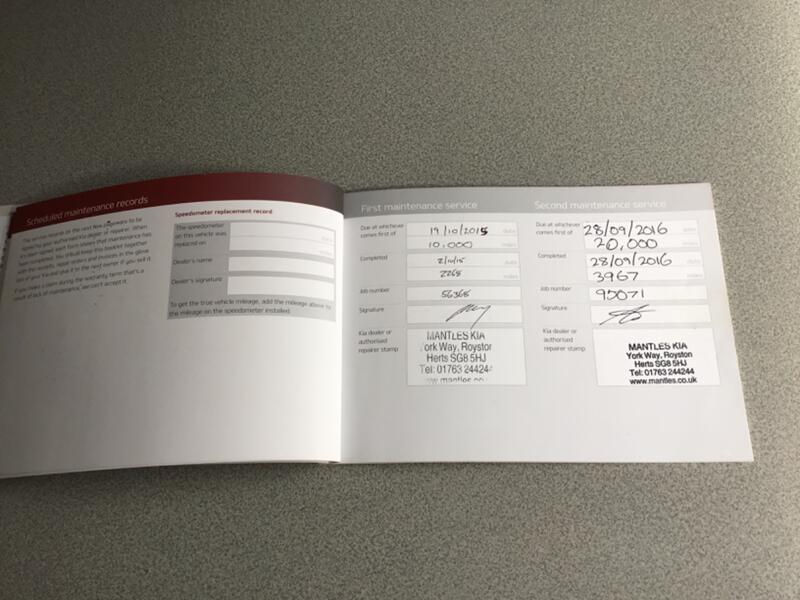 Scheduled maintenance records
The service records on the next few pages are to be
filled by your authorised Kia dealer or repairer. When
it's been signed, each form shows that maintenance has
been completed. You should keep this booklet together
with the receipts, repair orders and invoices in the glove
box of your Kia and give it to the next owner if you sell it.
If you make a claim during the warranty term that's a
result of lack of maintenance, we can't accept it.
Speedometer replacement record
The speedometer
on this vehicle was
replaced on
date
miles
Dealer's name
Dealer's signature
To get the true vehicle mileage, add the mileage above to
the mileage on the speedometer installed.
First maintenance service
Due at whichever
comes first of
19/10/2015 date
10,000 miles
Completed
2/10/15 date
2268 miles
Job number
56368
Signature
Kia dealer or
authorised
repairer stamp
MANTLES KIA
York Way, Royston
Herts SG8 5HJ
Tel: 01763 244244
www.mantles.co
Second maintenance service
Due at whichever
comes first of
28/09/2016 date
20,000 miles
Completed
28/09/2016 date
3967 miles
Job number
95071
Signature
Kia dealer or
authorised
repairer stamp
MANTLES KIA
York Way, Royston
Herts SG8 5HJ
Tel: 01763 244244
www.mantles.co.uk